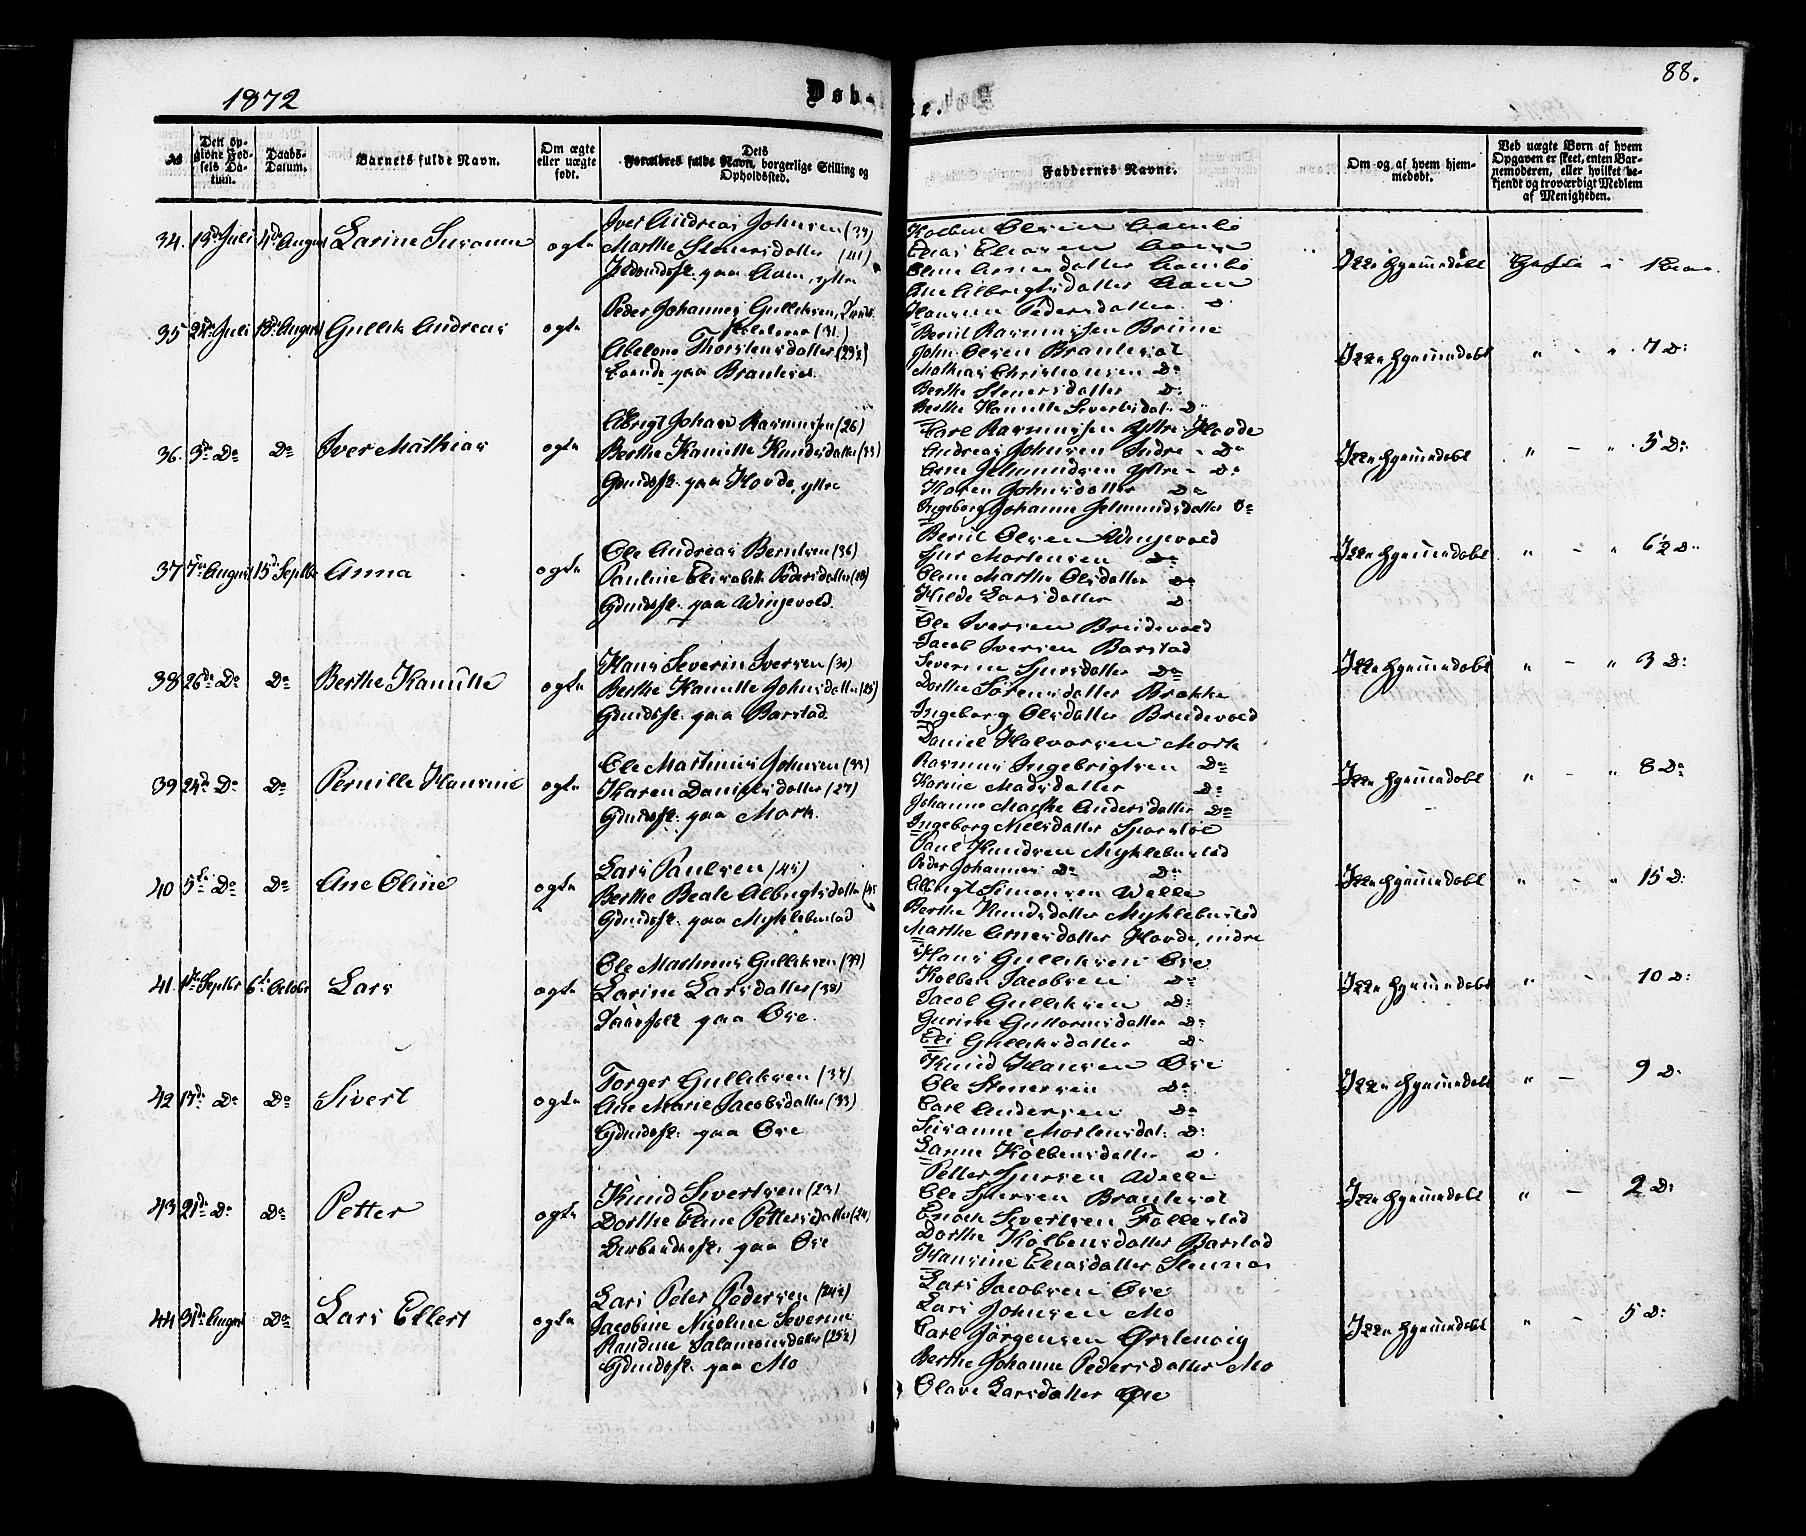 88.
1872
Døbte.
No
Den opgivne Fødsels Datum.
Daabs-Datum.
Barnets fulde Navn.
Om ægte eller uægte født.
Dets Forældres fulde Navn, borgerlige Stilling og Opholdssted.
Faddernes Navne.
Om og af hvem hjemmedøbt.
Ved uægte Børn af hvem Opgaven er skeet, enten Barnemoderen, eller hvilket bekjendt og troværdigt Medlem af Menigheden.
34. 13de Juli 4de August Larine Susanne ægte
Iver Andreas Johnsen (39)
Marthe Stenersdatter (41)
paa Aam, ytre
Kolben Olsen Aambø
Elias Eliasen Aam
Oline Arnesdatter Aambø
Ane Albrigtsdatter Aam
Hansine Pedersdatter D
Ikke hjemmedøbt
35 24de Juli 18de August Gullik Andreas ægte
Peder Johannes Gulliksen,
(31.)
Abelone Thorstensdatter (29½)
Boende paa Brauteset.
Bernt Rasmussen Brune
John Olsen Brauteset
Mathias Christiansen Do
Berthe Stenersdatter D:
Berthe Kanutte Sivertsdat: D:
Ikke hjemmedøbt " - " 7 D:
36. 3de Do Do Iver Mathias ægte
Albrigt Johan Rasmussen (26)
Berthe Kanutte Knudsdatter (33)
Gdmdsf. paa Hovde, ytre
Carl Rasmussen Ytre-Hovde
Andreas Johnsen Indre - Do
Arne Jetmundsen Ytre - Do
Karen Johnsdatter Do
Ingeborg Johanne Jetmundsdatter Do
Ikke hjemmedøbt " - " 5 D:
37 7de August 15de Septbr Anna ægte
Ole Andreas Berntsen (36)
Pauline Elisabeth Pedersdatter (28)
Gdmdsf. paa Wingevold.
Bernt Olsen Wingevold
Sjur Mortensen Do
Oline Marthe Olsdatter Do
Hilde Larsdatter D.
Ole Iversen Brudevold
Ikke hjemmedøbt " - " 6½ D:
38 26de Do Do Berthe Kanutte ægte
Hans Severin Iversen (30)
Berthe Kanutte Johnsdatter (25)
Gdmdsf. paa Barstad.
Jacob Iversen Barstad
Severine Sjursdatter Do
Dorthe Sørensdatter Brekke
Ingeborg Olsdatter Brudevold
Ikke hjemmedøbt " - " 3 D:
39 24de Do Do Pernille Hansine ægte
Ole Martinus Johnsen (33)
Karen Danielsdatter (27)
Gdmdsf. paa Mork.
Daniel Halvorsen Mork
Rasmus Ingebrigtsen Do
Karine Madsdatter D:
Johanne Marthe Andersdatter Do
Ingeborg Nilsdatter
Ikke hjemmedøbt " - " 8 Do
40 5te Do Do Ane Oline ægte
Lars Paulsen (45)
Berthe Beate Albrigtsdatter
Gdmdsf. paa Myklebustad
Paul Knudsen Myklebustad
Peder Johannes Do Do
Albrigt Simonsen Welle
Berthe Knudsdatter Myklebustad
Marthe Arnesdatter Hovde, indre
Ikke hjemmedøbt " - " 15 D:
41. 1ste Septbr 6te Octobr Lars ægte
Ole Martinus Gulliksen (39)
Larine Larsdatter (38)
paa Øre.
Hans Gulliksen Øre
Kolben Jacobsen Do
Jacob Gulliksen D:
Gurine Guttormsdatter D:
Eli Gulliksdatter D.
Ikke hjemmedøbt " - 10 D:
42 17de Do Do Sivert ægte
Torger Gulliksen (37)
Ane Marie Jacobsdatter (33)
Gdmdsf. paa Øre
Knud Hansen Øre
Ole Stenersen Do
Carl Andersen Do
Susanne Mortensdat: D:
Lanne Kolbensdatter D
Ikke hjemmedøbt " - 9 D:
43 21de Do Do Petter ægte
Knud Sivertsen (23)
Dorthe Eline Pettersdatter (24)
paa Øre
Petter Sjursen Welle
Ole Sjursen Brauteset
Enok Sivertsen Follestad
Dorthe Kolbensdatter Barstad
Hansine Eliasdatter
Ikke hjemmedøbt " - 2 D:
44 31te August Do Lars Ellert ægte
Lars Peter Pedersen (24½)
Jacobine Nicoline Severine
Randine Salamonsdatter (25½)
Gdmdsf. paa Mo
Lars Jacobsen Øre
Lars Johnsen Mo
Carl Jørgensen Ørstenvig
Berthe Johanne Pedersdatter Mo
Olave Larsdatter Øre
Ikke hjemmedøbt " - 5 D: